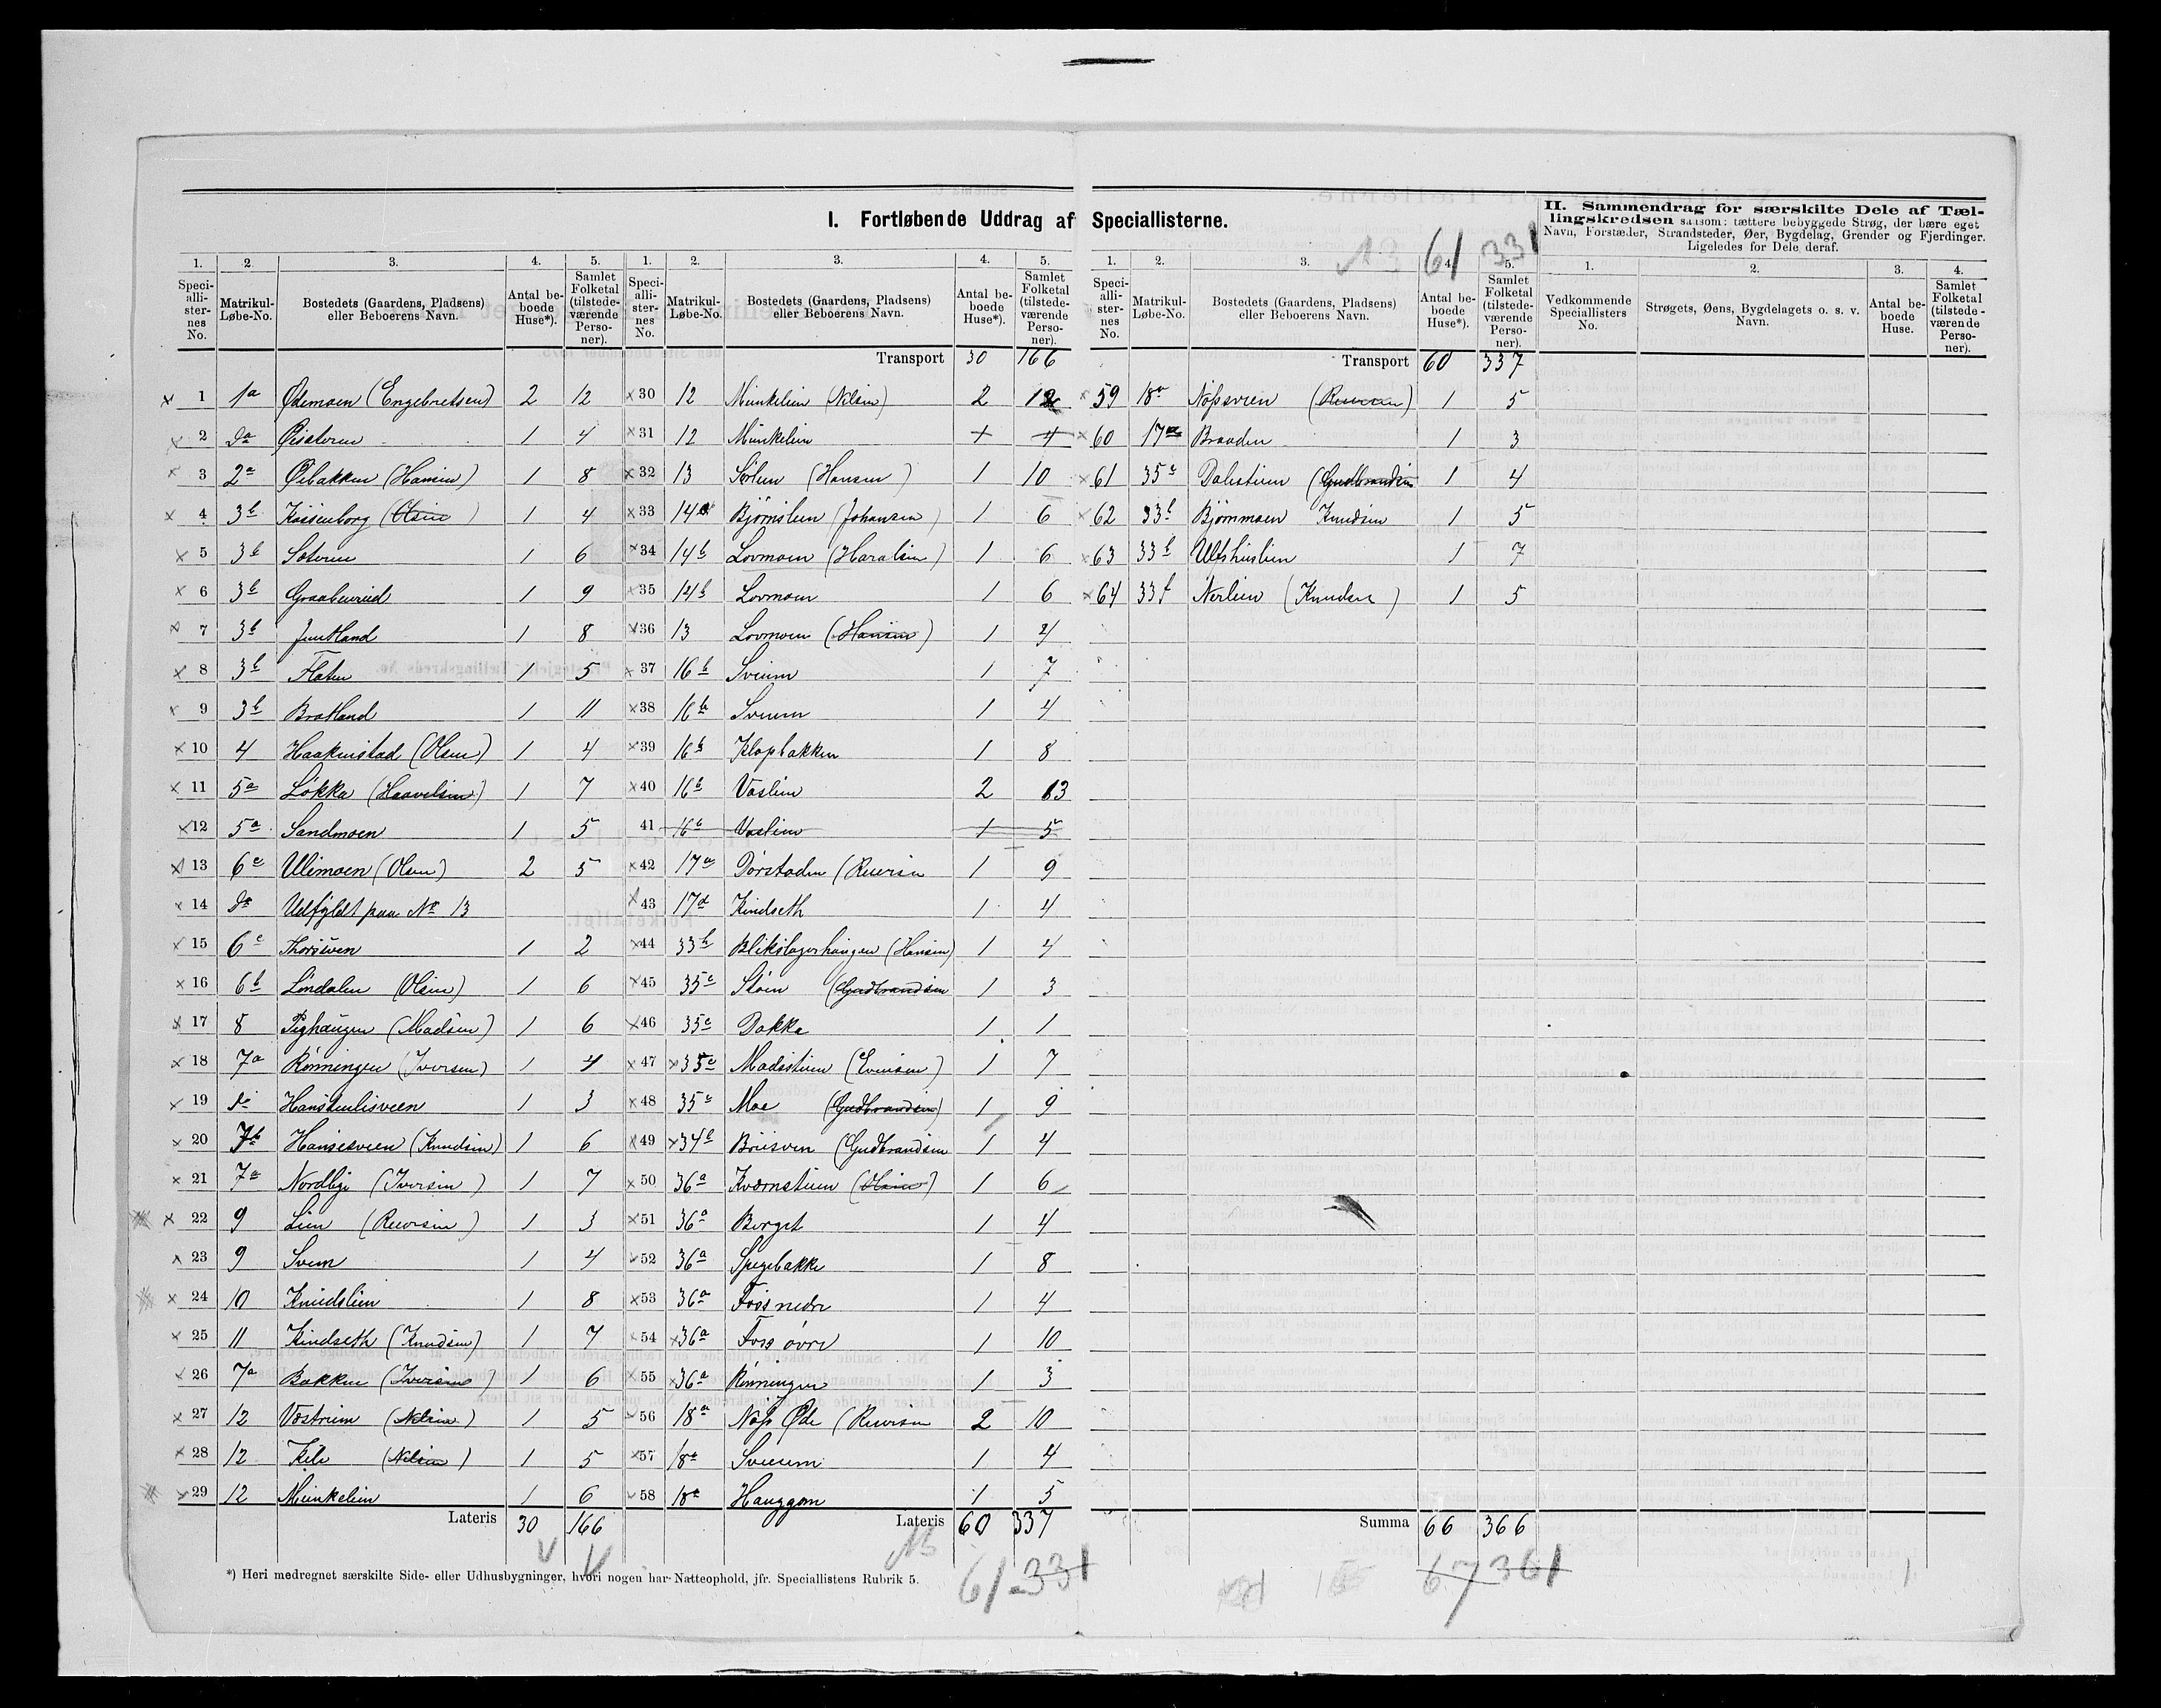 I. Fortløbende Uddrag af Speciallisterne.
II. Sammendrag for særskilte Dele af Tællingskredsen saasom: tættere bebyggede Strøg, der bære eget
Navn, Forstæder, Strandsteder, Øer, Bygdelag, Grender og Fjerdinger.
Ligeledes for Dele deraf.
61 331
1. 2. 3. 4. 5. 1. 2. 3. 4. 5. 1. 2. 3. 4. 5. 1. 2. 3. 4.
Speciallisternes No. Matrikul-Løbe-No. Bostedets (Gaardens, Pladsens) eller Beboerens Navn. Antal beboede Huse*). Samlet Folketal (tilstedeværende Personer).
Speciallisternes No. Matrikul-Løbe-No. Bostedets (Gaardens, Pladsens) eller Beboerens Navn. Antal beboede Huse*). Samlet Folketal (tilstedeværende Personer).
Speciallisternes No. Matrikul-Løbe-No. Bostedets (Gaardens, Pladsens) eller Beboerens Navn. Antal beboede Huse*). Samlet Folketal (tilstedeværende Personer).
Vedkommende Speciallisters No. Strøgets, Øens, Bygdelagets o. s. v. Navn. Antal beboede Huse. Samlet Folketal (tilstedeværende Personer).
1 1a Ødemoen (Engebretsen) 2 12
2 da 1 4
3 2a Øibakken (Hansen) 1 8
4 3b Kassenborg (Olsen) 1 4
5 3b 1 6
6 3b 1 9
7 3b Juutland 1 8
8 3b Flaten 1 5
9 3b Bratland 1 11
10 4 Haakenstad (Olsen) 1 4
11 5a Løkka (Haavelsen) 1 7
12 5a Sandmoen 1 5
13 6 Ulimoen (Olsen) 2 5
14 Udfyldt paa No 13
15 6 1 2
16 6b Lindalen (Olsen) 1 6
17 8 Pighaugen (Madsen) 1 6
18 7a Rønningen (Iversen) 1 4
19 1 3
20 7b (Knudsen) 1 6
21 7a Nordbye (Iversen) 1 7
22 9 Lien 1 3
23 9 Sveen 1 4
24 10 Knudslien 1 8
25 11 Kindseth (Knudsen) 1 7
26 7a Bakken (Iversen) 1 6
27 12 (Nilsen) 1 5
28 12 (Nilsen) 1 5
29 12 Munkelien 1 6
Lateris 30 166
Transport 30 166
30 12 Munkelien (Nilsen) 2 12
31 12 Munkelien 1 4
32 13 Sølien (Hansen) 1 10
33 14a Bjørnslien (Johansen) 1 6
34 14b Lovmoen (Haralsen) 1 6
35 14b Lovmoen 1 6
36 13 Lovmoen (Hansen) 1 4
37 16b Sveum 1 7
38 16b Sveum 1 4
39 16b Klopbakken 1 8
40 16b Vaslien 2 13
41 16b Vaslien 1 5
42 17a 1 9
43 17 Kindseth 1 4
44 33b Blikslagerhaugen (Hansen) 1 4
45 35 Støen (Gudbrandsen 1 3
46 35 Dokka 1 1
47 35 Madsstuen (Evensen) 1 7
48 35 Moe (Gudbrandsen) 1 9
49 34 (Gudbrandsen 1 4
50 36a Kværnstuen (Olsen) 1 6
51 36a Berget 1 4
52 36a 1 8
53 36a Foss nedre 1 4
54 36a Foss øvre 1 10
55 36a Rønningen 1 3
56 18a 2 10
57 18a Sveum 1 4
58 18a 1 5
Lateris 60 337
61 - 331
Transport 60 337
59 18a 1 5
60 17a Braaden 1 3
61 35 Dalestuen (Gudbrandsen 1 4
62 33b Bjørnmoen Knudsen 1 5
63 33b Ulfshuslien 1 7
64 33 Nerlien (Knudsen) 1 5
Summa 66 366
67 361
*) Heri medregnet særskilte Side- eller Udhusbygninger, hvori nogen har Natteophold, jfr. Speciallistens Rubrik 5.